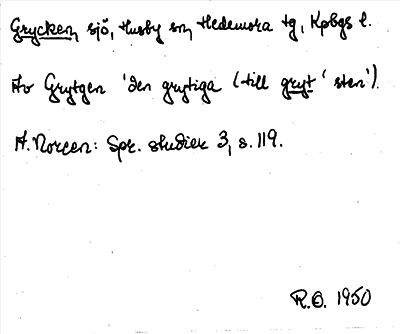 Grycken, sjö, Husby sn, Hedemora tg, Kpbgs l.
Av Grytgen 'den grytiga (till gryt 'sten').
A. Noreen: Spr. studier 3, s. 119.
R.O. 1950